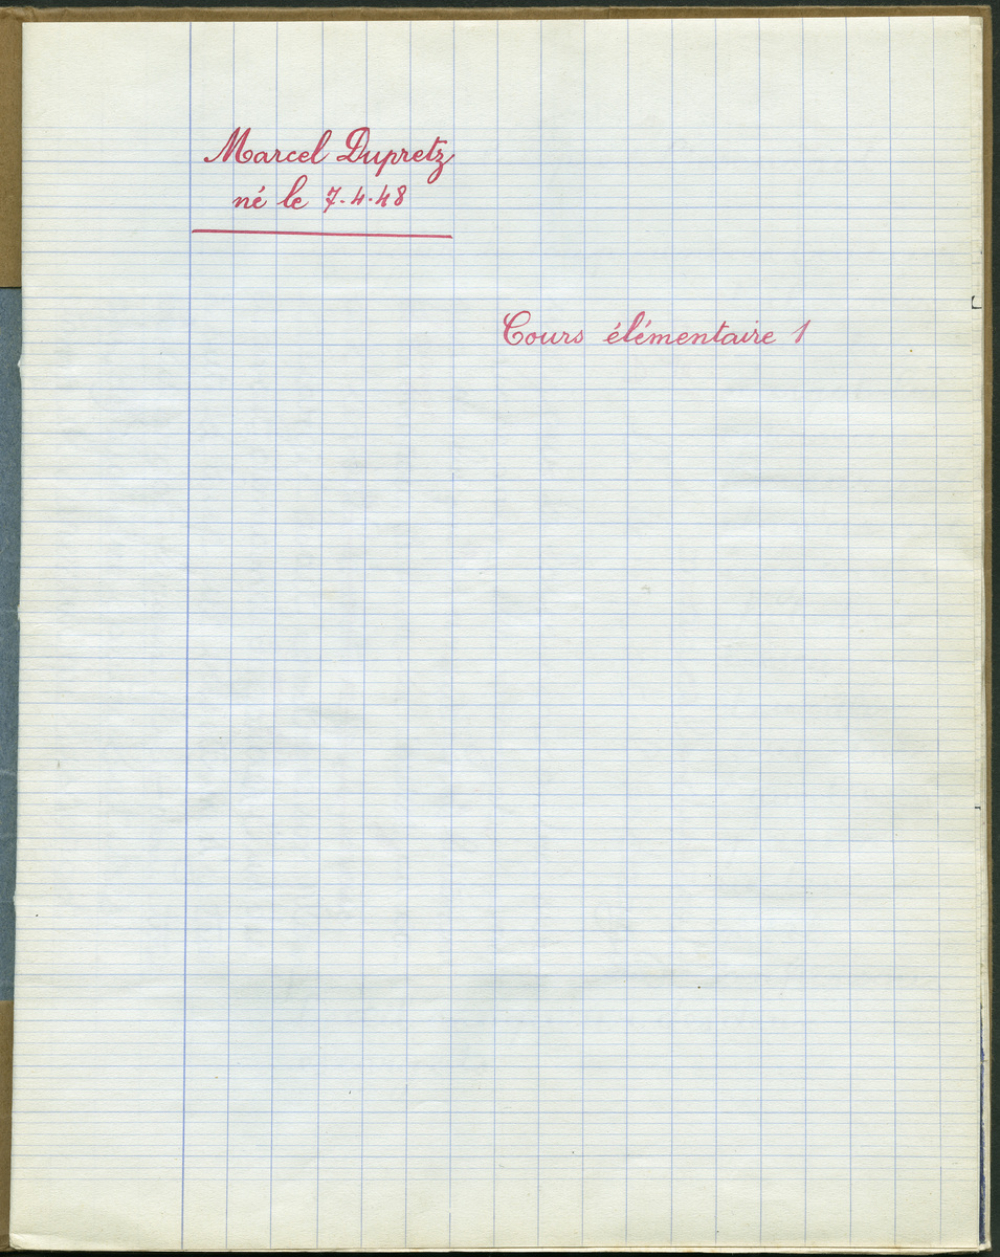 Marcel Dupretz
né le 7.4.48
Cours élémentaire 1